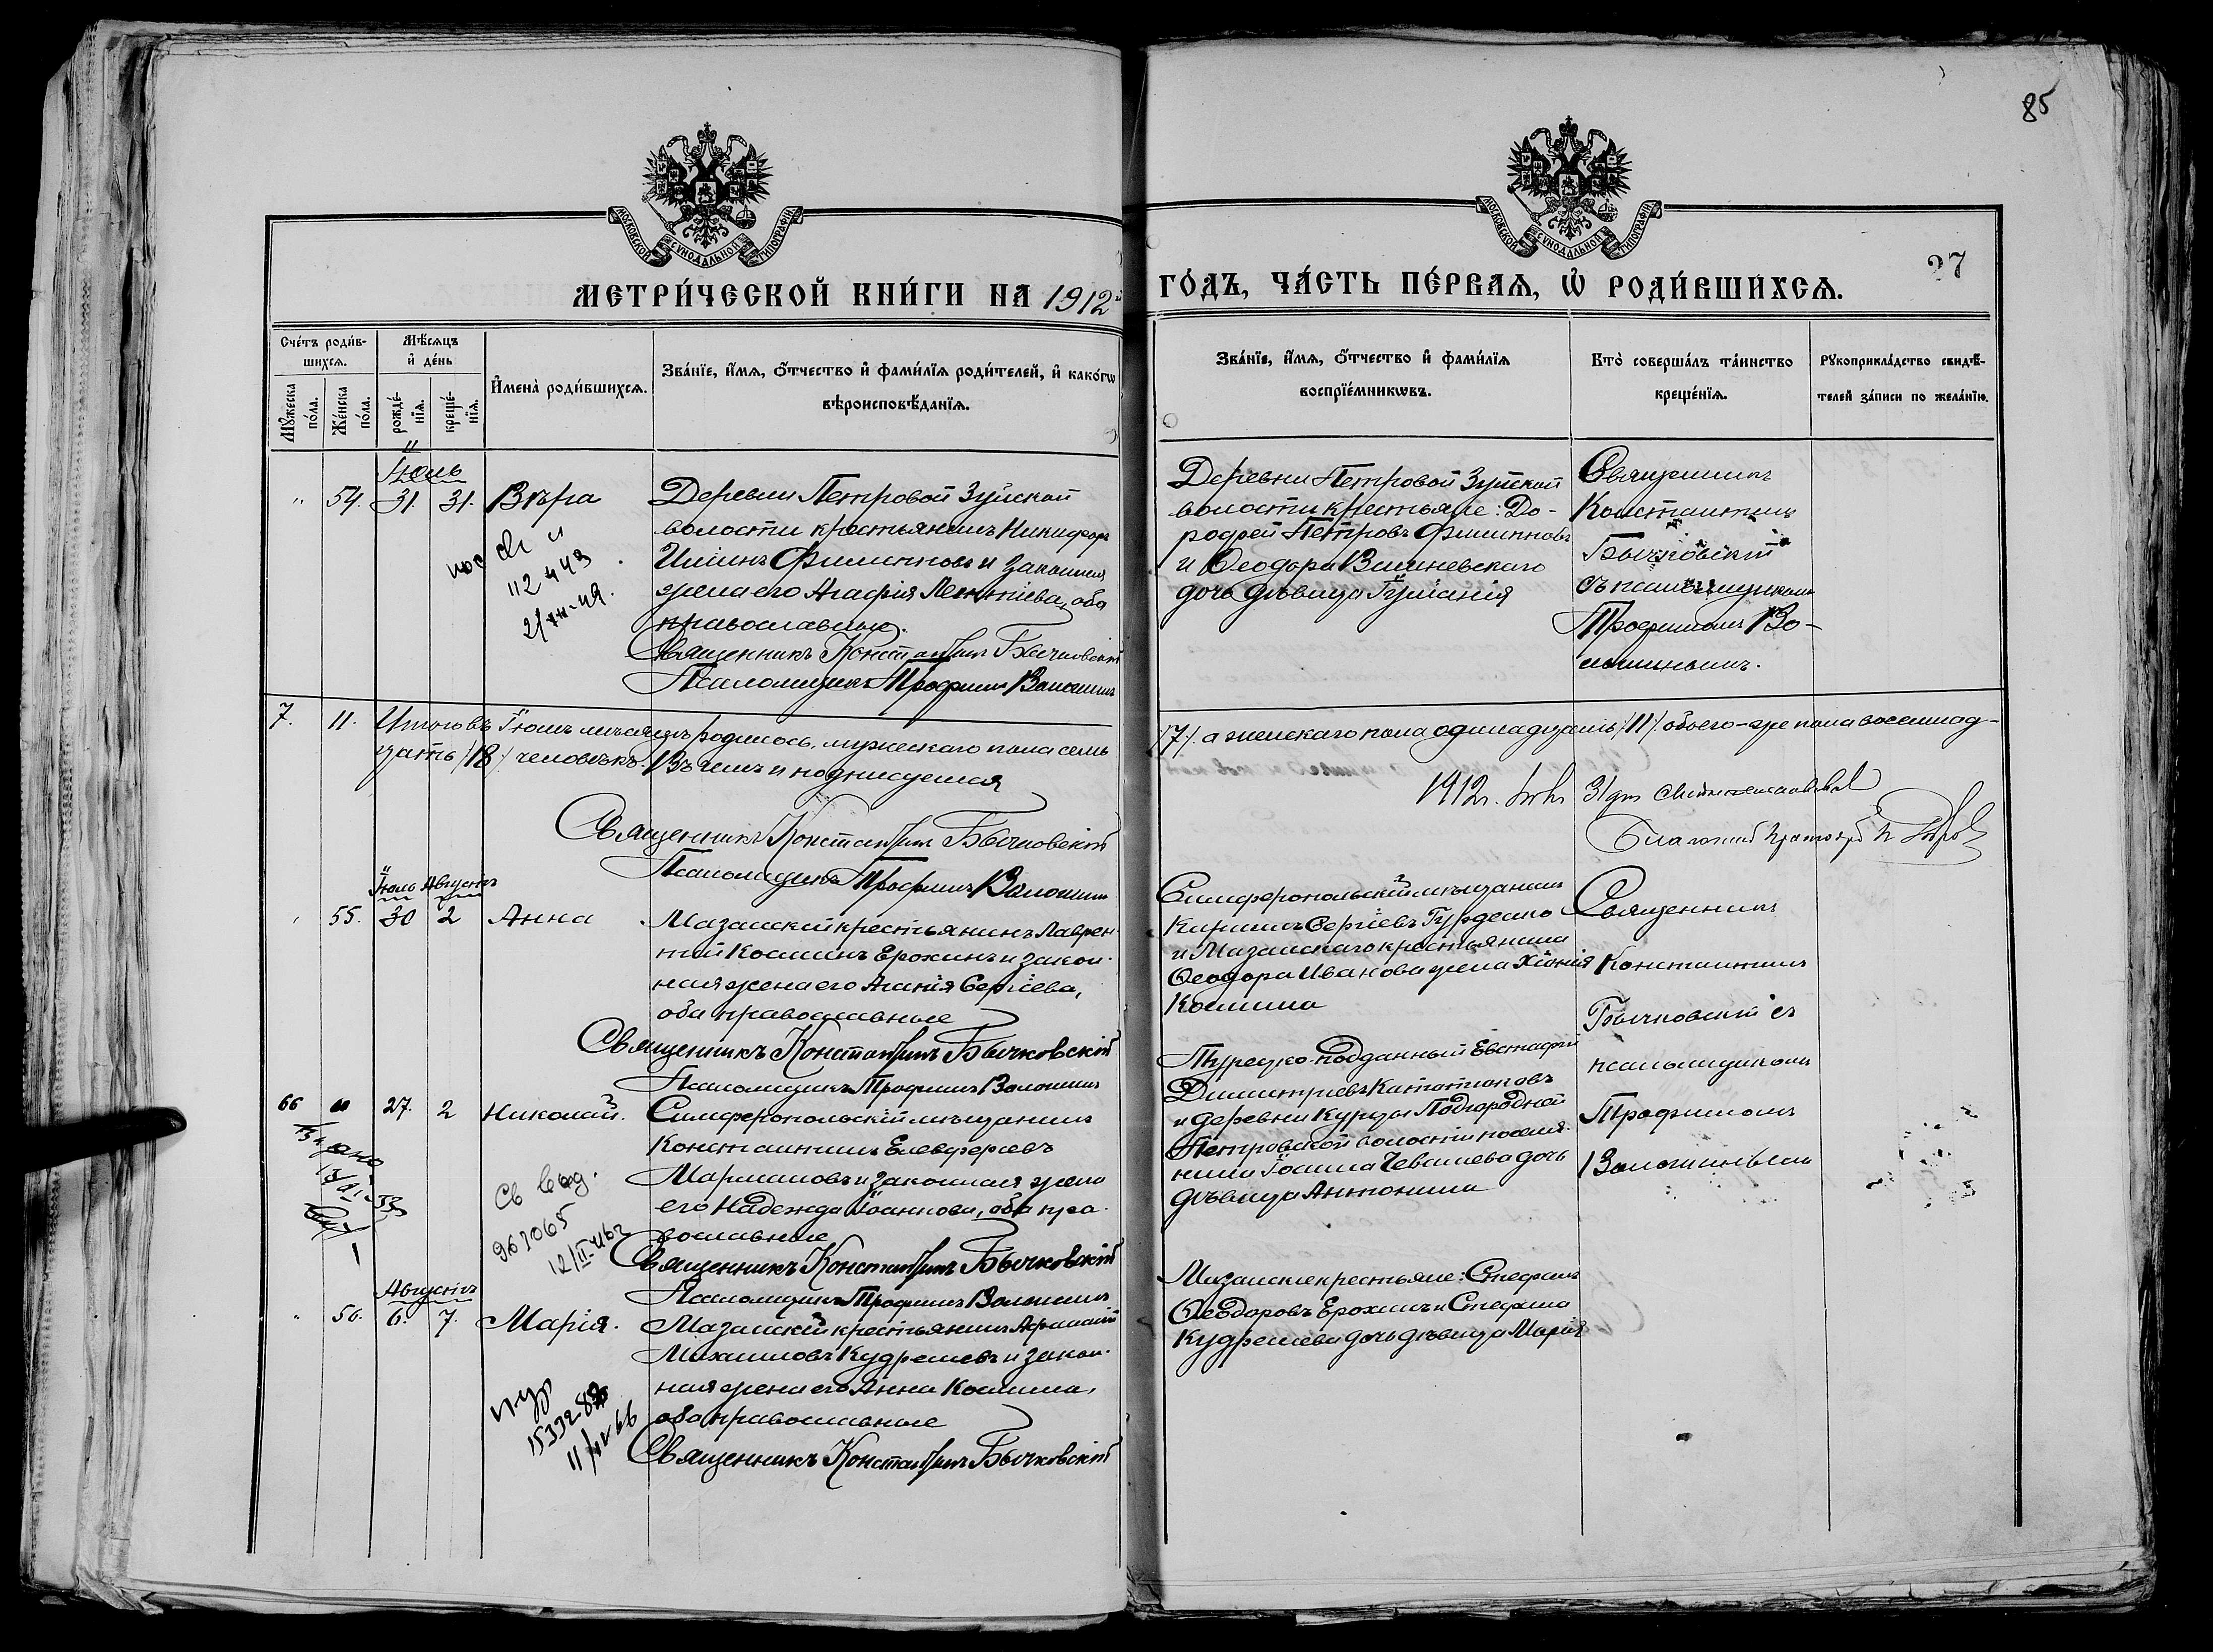 85
МОСКОВСКОЙ СѴНОДАЛЬНОЙ ТИПОГРАФІИ
МОСКОВСКОЙ СѴНОДАЛЬНОЙ ТИПОГРАФІИ
27
МЕТРИ́ЧЕСКОЙ КНИ́ГИ НА 1912й
ГО́ДЪ, ЧА́СТЬ ПЕ́РВАЯ, Ѡ҆ РОДИ́ВШИХСЯ.
Сче́тъ роди́вшихся.
Мꙋ́жеска по́ла.
Же́нска по́ла.
Мѣ́сяцъ и҆ де́нь
рожде́нїя.
креще́нїя.
И҆мена̀ роди́вшихся.
Зва́нїе, и҆́мя, ѻ҆́тчество и҆ фами́лїя роди́телей, и҆ како́гѡ
вѣроисповѣ́данїя.
Зва́нїе, и҆́мя, ѻ҆́тчество и҆ фами́лїя
воспрїе́мникѡвъ.
Кто̀ соверша́лъ та́инство
креще́нїя.
Рꙋкоприкла́дство свидѣ́-
телей за́писи по жела́нїю.
Іюль
" 54. 31. 31. Вѣра
Деревни Петровой Зуйской
волости крестьянинъ Никифоръ
Ильинъ Филипповъ и законная
жена его Агафія Леонтіева, оба
православные.
Священникъ Константинъ Бычковскій
Псаломщикъ Трофимъ Волошинъ
112443
Деревни Петровой Зуйской
волости крестьяне: До-
рофей Петровъ Филипповъ
и Ѳеодора Вишневскаго
дочь дѣвица
Священникъ
Константинъ
Бычковскій
съ псаломщикомъ
Трофимомъ Во-
лошинымъ.
7. 11. Итого въ Іюлѣ мѣсяцѣ родилось, мужескаго пола семь
/7/. а женскаго пола одинадцать /11/. обоего-же пола восемнад-
цать /18/ человѣкъ. Въ чемъ и подписуемся
1912г.
31 дня
Священникъ Константинъ Бычковскій
Псаломщикъ Трофимъ Волошинъ
Іюль Августъ
55. 30 2 Анна
Мазанскій крестьянинъ Лаврен-
тій Косминъ Ерохинъ и закон-
ная жена его Агапія Сергіева,
оба православные
Священникъ Константинъ Бычковскій
Псаломщикъ Трофимъ Волошинъ
Симферопольскій мѣщанинъ
Кириллъ Сергіевъ Гурденко
и Мазанскаго крестьянина
Ѳеодора Иванова жена Хіонія
Космина
Священникъ
Константинъ
Бычковскій съ
псаломщикомъ
Трофимомъ
Волошинымъ
66 27. 2 Николай.
Симферопольскій мѣщанинъ
Константинъ Елевферіевъ
и законная жена
его Надежда Іоаннова, оба пра-
вославные
Священникъ Константинъ Бычковскій
Псаломщикъ Трофимъ Волошинъ
967065
12/II-46г
Турецко-подданный Евстафій
Димитріевъ
и деревни Курцы Подгородней
Петровской волости поселя-
нина Іоанна дочь
дѣвица Антонина
Августъ
" 56. 6. 7. Марія.
Мазанскій крестьянинъ Афанасій
Михаиловъ Кудрешевъ и закон-
ная жена его Анна Космина,
оба православные
Священникъ Константинъ Бычковскій
Мазанскіе крестьяне: Стефанъ
Ѳеодоровъ Ерохинъ и Стефана
Кудрешева дочь дѣвица Марія